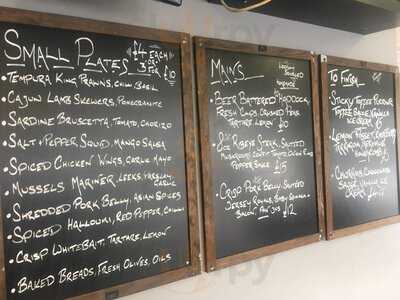 Small Plates £4 each
3 for £10
Tempura King Prawns, Chilli Basil
Cajun Lamb Skewers, Pomegranate
Sardine Bruscetta, Tomato, Chorizo
Salt + Pepper Squid, Mango Salsa
Spiced Chicken Wings, Garlic Mayo
Mussels Mariner, Leeks, Parsley, Garlic
Shredded Pork Belly, Asian Spices
Spiced Hallouki, Red Pepper,
Crisp Whitebait, Tartare, Lemon
Baked Breads, Fresh Olives, Oils
Mains
Locally Sourced
Beer Battered Haddock,
Fresh Chips, Crushed Peas
Tartare, Lemon £10
8oz Ribeye Steak, Salted
Mushrooms, Tomato, Onion Ring
Pepper Sauce £15
Crisp Pork Belly, Salted
Jersey Royals, Baby Spinach
Bacon, Jus £12
To Finish
Sticky Toffee Pudding
Toffee Sauce, Vanilla
Ice Cream
Lemon Posset,